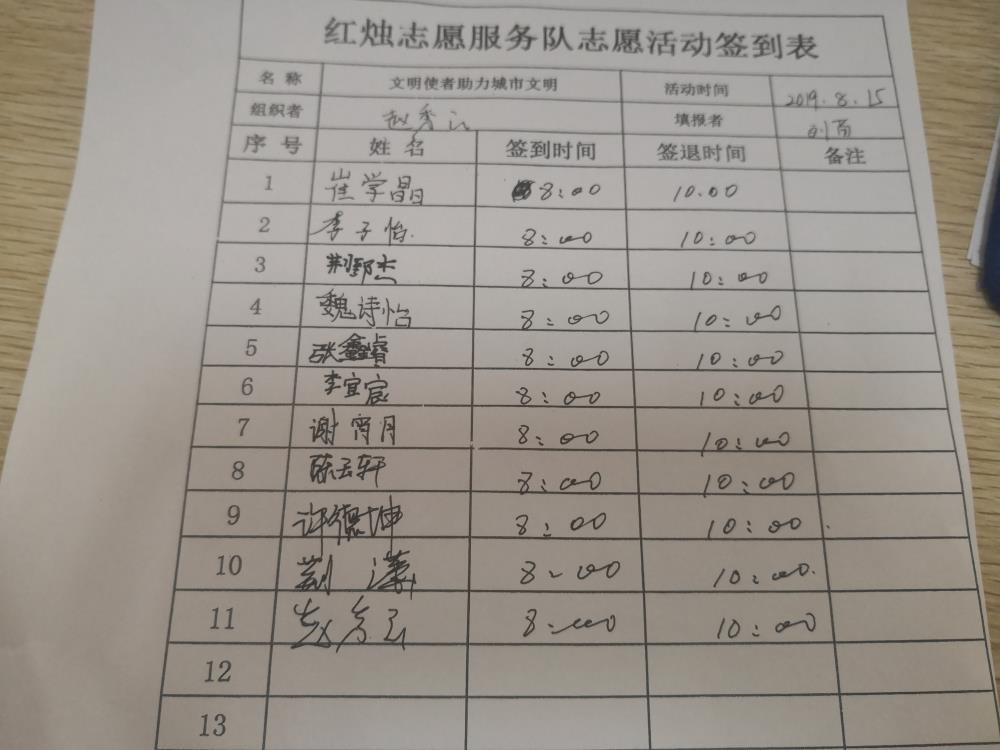 红烛志愿服务队志愿活动签到表
名称 文明使者助力城市文明 活动时间 2019.8.15
组织者 赵秀云 填报者
序号 姓名 签到时间 签退时间 备注
1 崔学晶 8:00 10.00
2 李子怡. 8:00 10:00
3 荆郅杰 8:00 10:00
4 魏诗怡 8:00 10:00
5 张鑫睿 8:00 10:00
6 李宜宸 8:00 10:00
7 谢宵月 8:00 10:00
8 陈云轩 8:00 10:00
9 许德坤 8:00 10:00
10 8:00 10:00.
11 赵秀云 8:00 10:00
12
13